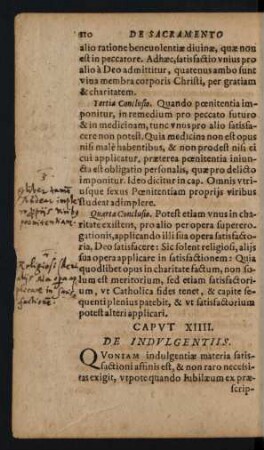 110 DE SACRAMENTO
alio ratione beneuolentiæ diuinæ, quæ non
est in peccatore. Adhæc, satisfactio vnius pro
alio à Deo admittitur, quatenus ambo sunt
viua membra corporis Christi, per gratiam
& charitatem.
Tertia Conclusio. Quando pœnitentia im-
ponitur, in remedium pro peccato futuro
& in medicinam, tunc vnus pro alio satisfa-
cere non potest. Quia medicina non est opus
nisi malè habentibus, & non prodest nisi ei
cui applicatur, præterea pœnitentia iniun-
cta est obligatio personalis, quæ pro delicto
imponitur. Ideo dicitur in cap. Omnis vtri-
usque sexus Pœnitentiam proprijs viribus
studeat adimplere.
Quarta Conclusio. Potest etiam vnus in cha-
ritate existens, pro alio per opera superero-
gationis, applicando illi sua opera satisfacto-
ria, Deo satisfacere: Sic solent religiosi, alijs
sua opera applicare in satisfactionem: Quia
quodlibet opus in charitate factum, non so-
lum est meritorium, sed etiam satisfactori-
um, vt Catholica fides tenet, & capite se-
quenti plenius patebit, & vt satisfactorium
potest alteri applicari.
CAPVT XIIII.
DE INDVLGENTIIS.
QVONIAM indulgentiæ materia satis-
factioni affinis est, & non raro necessi-
tas exigit, vtpote quando Iubilæum ex præ-
scrip-